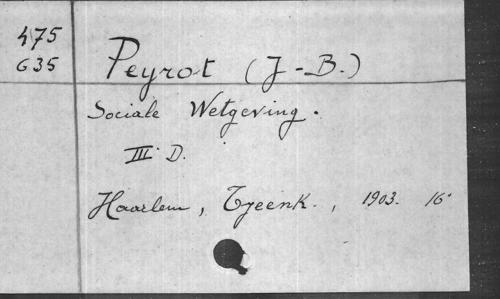 475
G35
Peyrot (J-B.)
Sociale Wetgeving.
III D.
Haarlem, Tjeenk., 1903. 16°